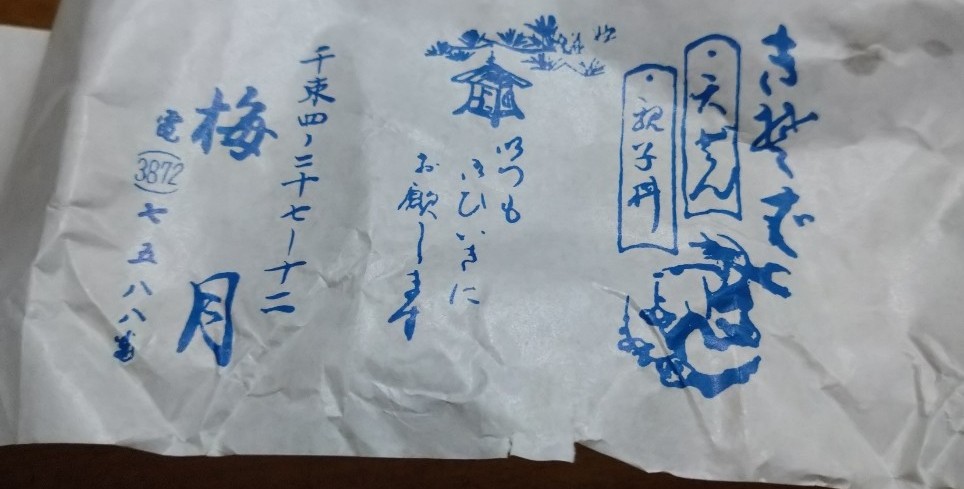 きそば
・天どん
・親子丼
いつも
ごひいきに
お願します
千束四ノ二十七ー十二
梅月
電(3872)七五八八番